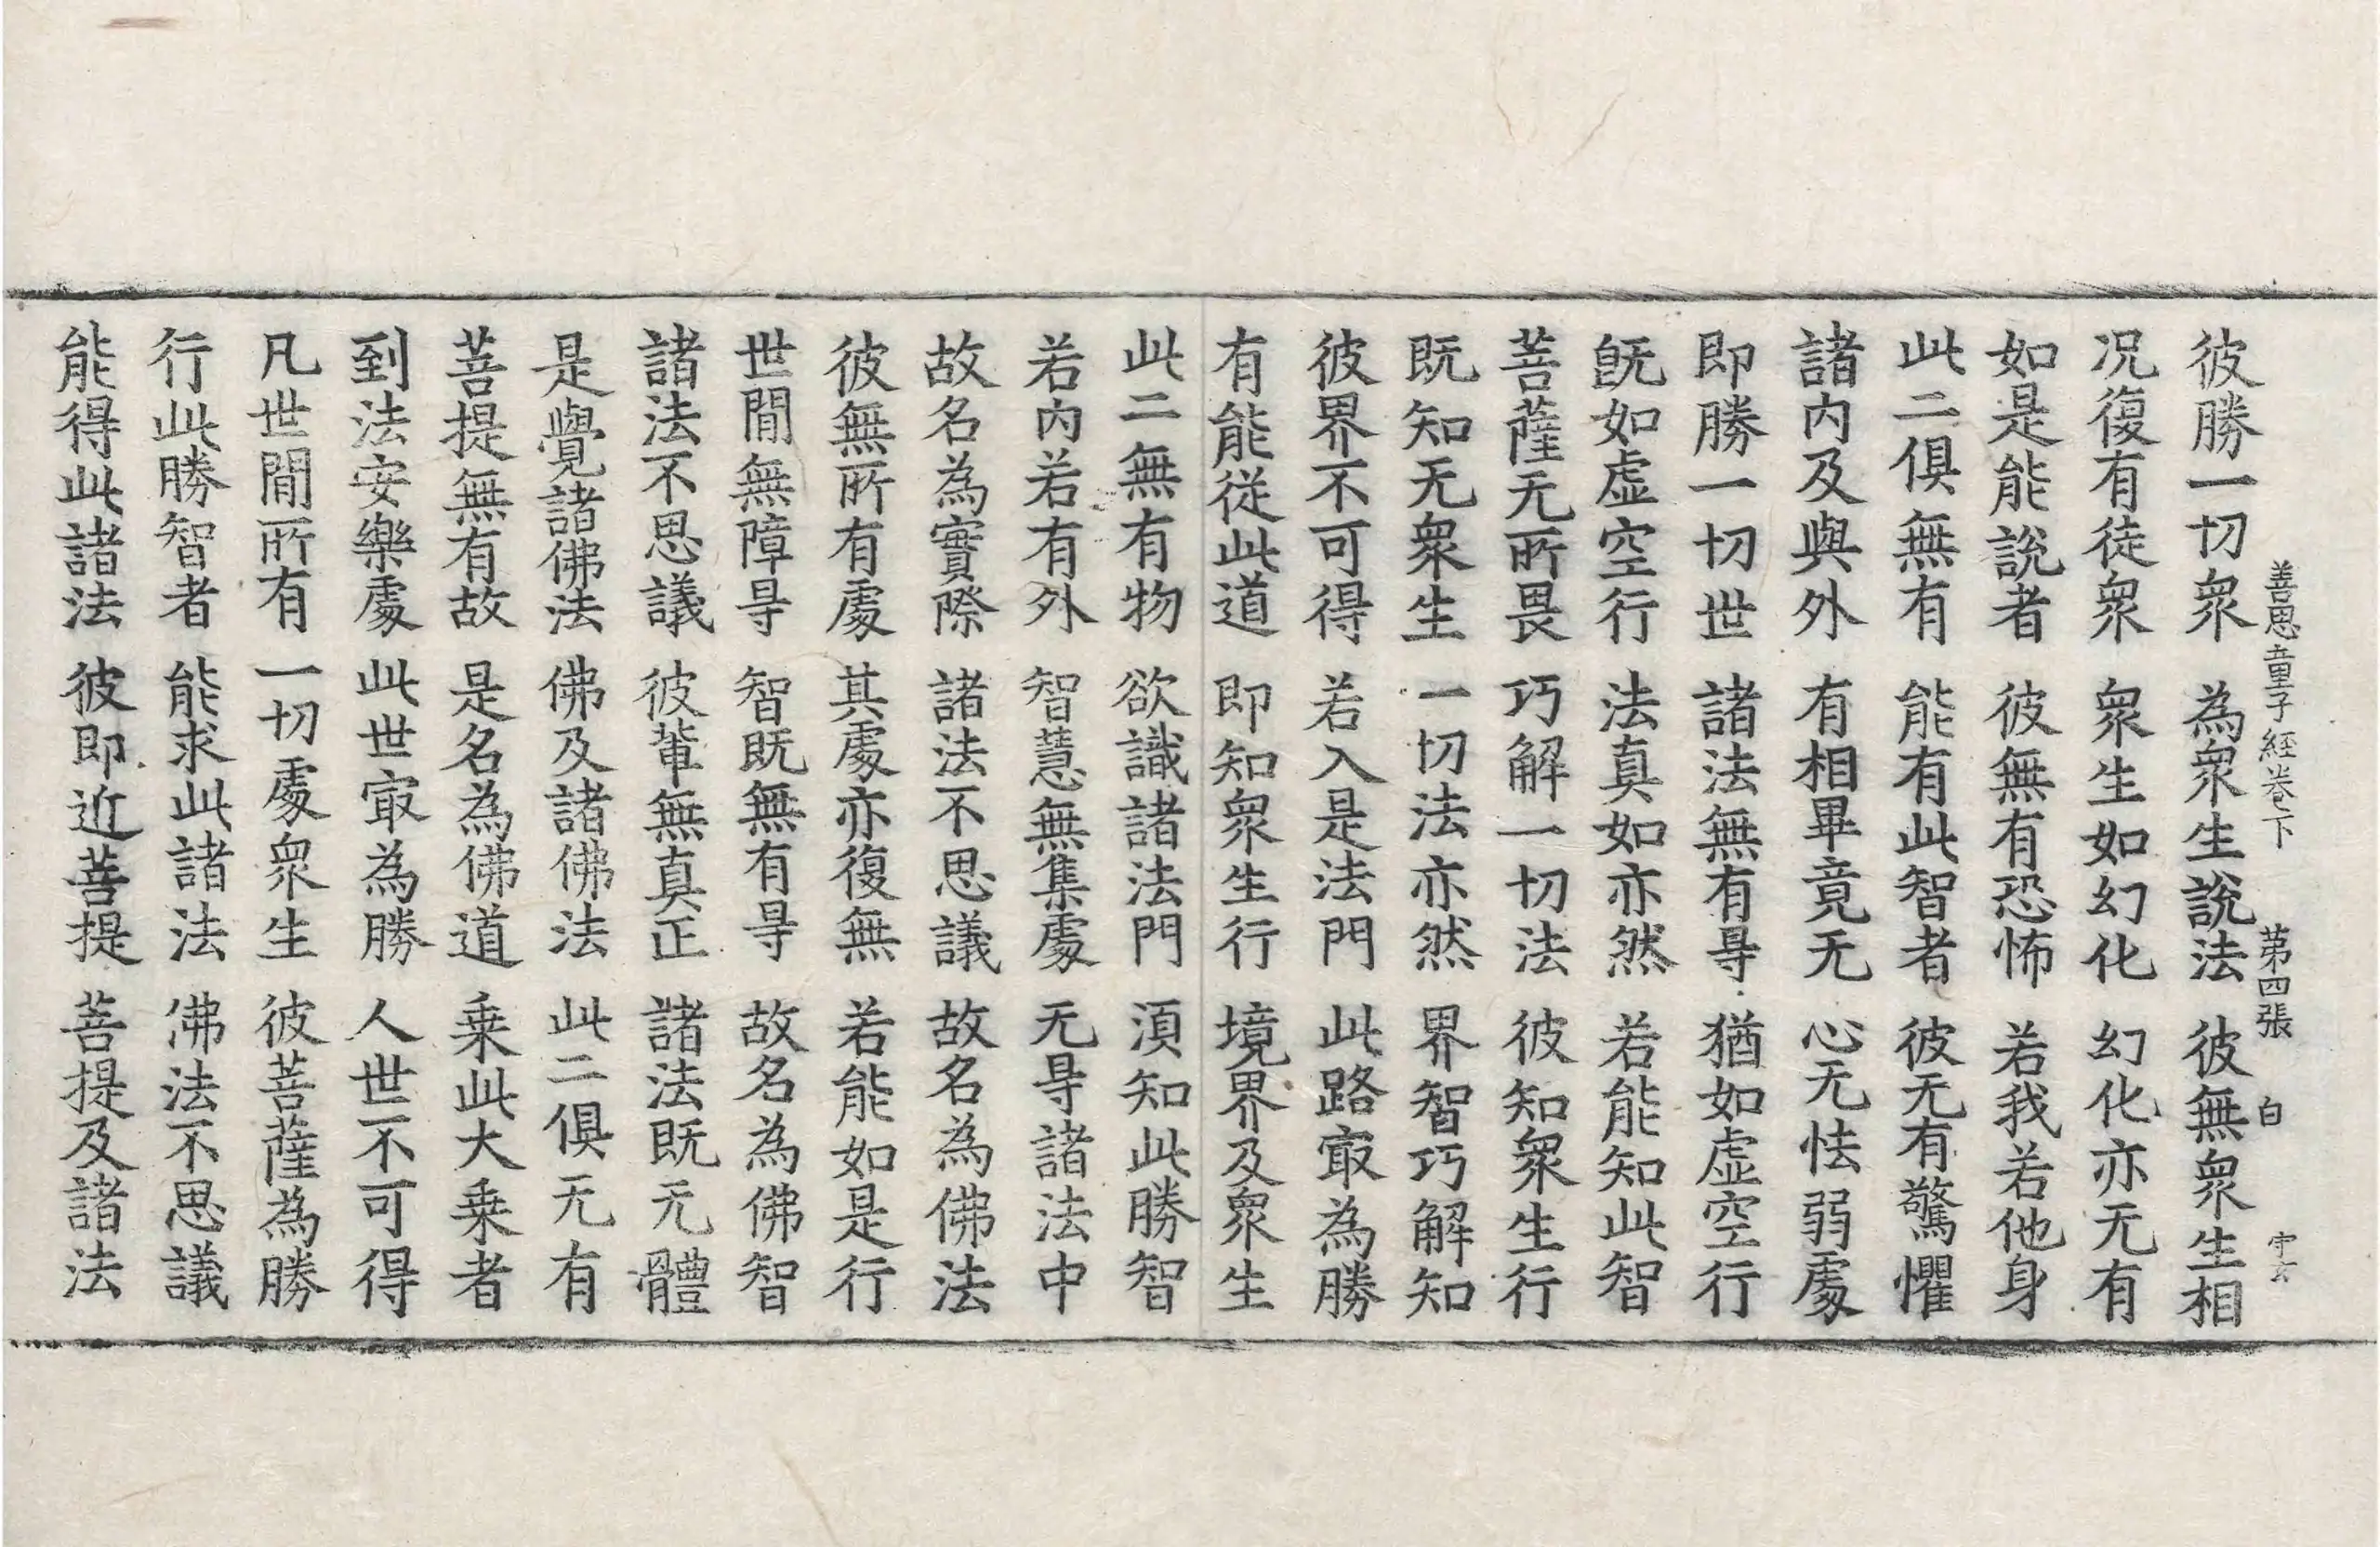 善思童子經卷下　第四張　白
彼勝一切衆　為衆生說法　彼無衆生相
况復有徒衆　衆生如幻化　幻化亦无有
如是能說者　彼無有恐怖　若我若他身
此二俱無有　能有此智者　彼无有驚懼
諸内及與外　有相畢竟无　心无怯弱處
即勝一切世　諸法無有㝵　猶如虚空行
既如虚空行　法真如亦然　若能知此智
菩薩无所畏　巧解一切法　彼知衆生行
既知无衆生　一切法亦然　界智巧解知
彼界不可得　若入是法門　此路㝡為勝
有能從此道　即知衆生行　境界及衆生
此二無有物　欲識諸法門　湏知此勝智
若内若有外　智慧無集處　无㝵諸法中
故名為實際　諸法不思議　故名為佛法
彼無所有處　其處亦復無　若能如是行
世間無障㝵　智既無有㝵　故名為佛智
諸法不思議　彼軰無真正　諸法既无體
是覺諸佛法　佛及諸佛法　此二俱无有
菩提無有故　是名為佛道　乗此大乗者
到法安樂處　此世㝡為勝　人世不可得
凡世間所有　一切處衆生　彼菩薩為勝
行此勝智者　能求此諸法　佛法不思議
能得此諸法　彼即近菩提　菩提及諸法